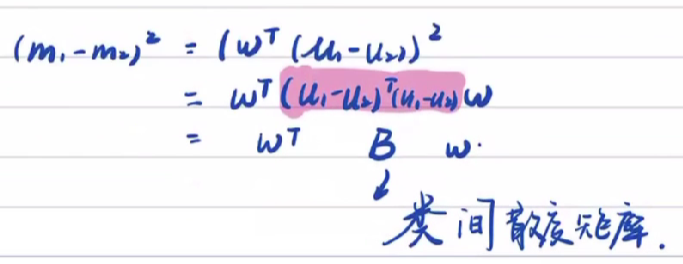 (m₁-m₂)² = (wᵀ(u₁-u₂))²
= wᵀ(u₁-u₂)ᵀ(u₁-u₂)w
= wᵀ B w.
↓
类间散度矩阵.